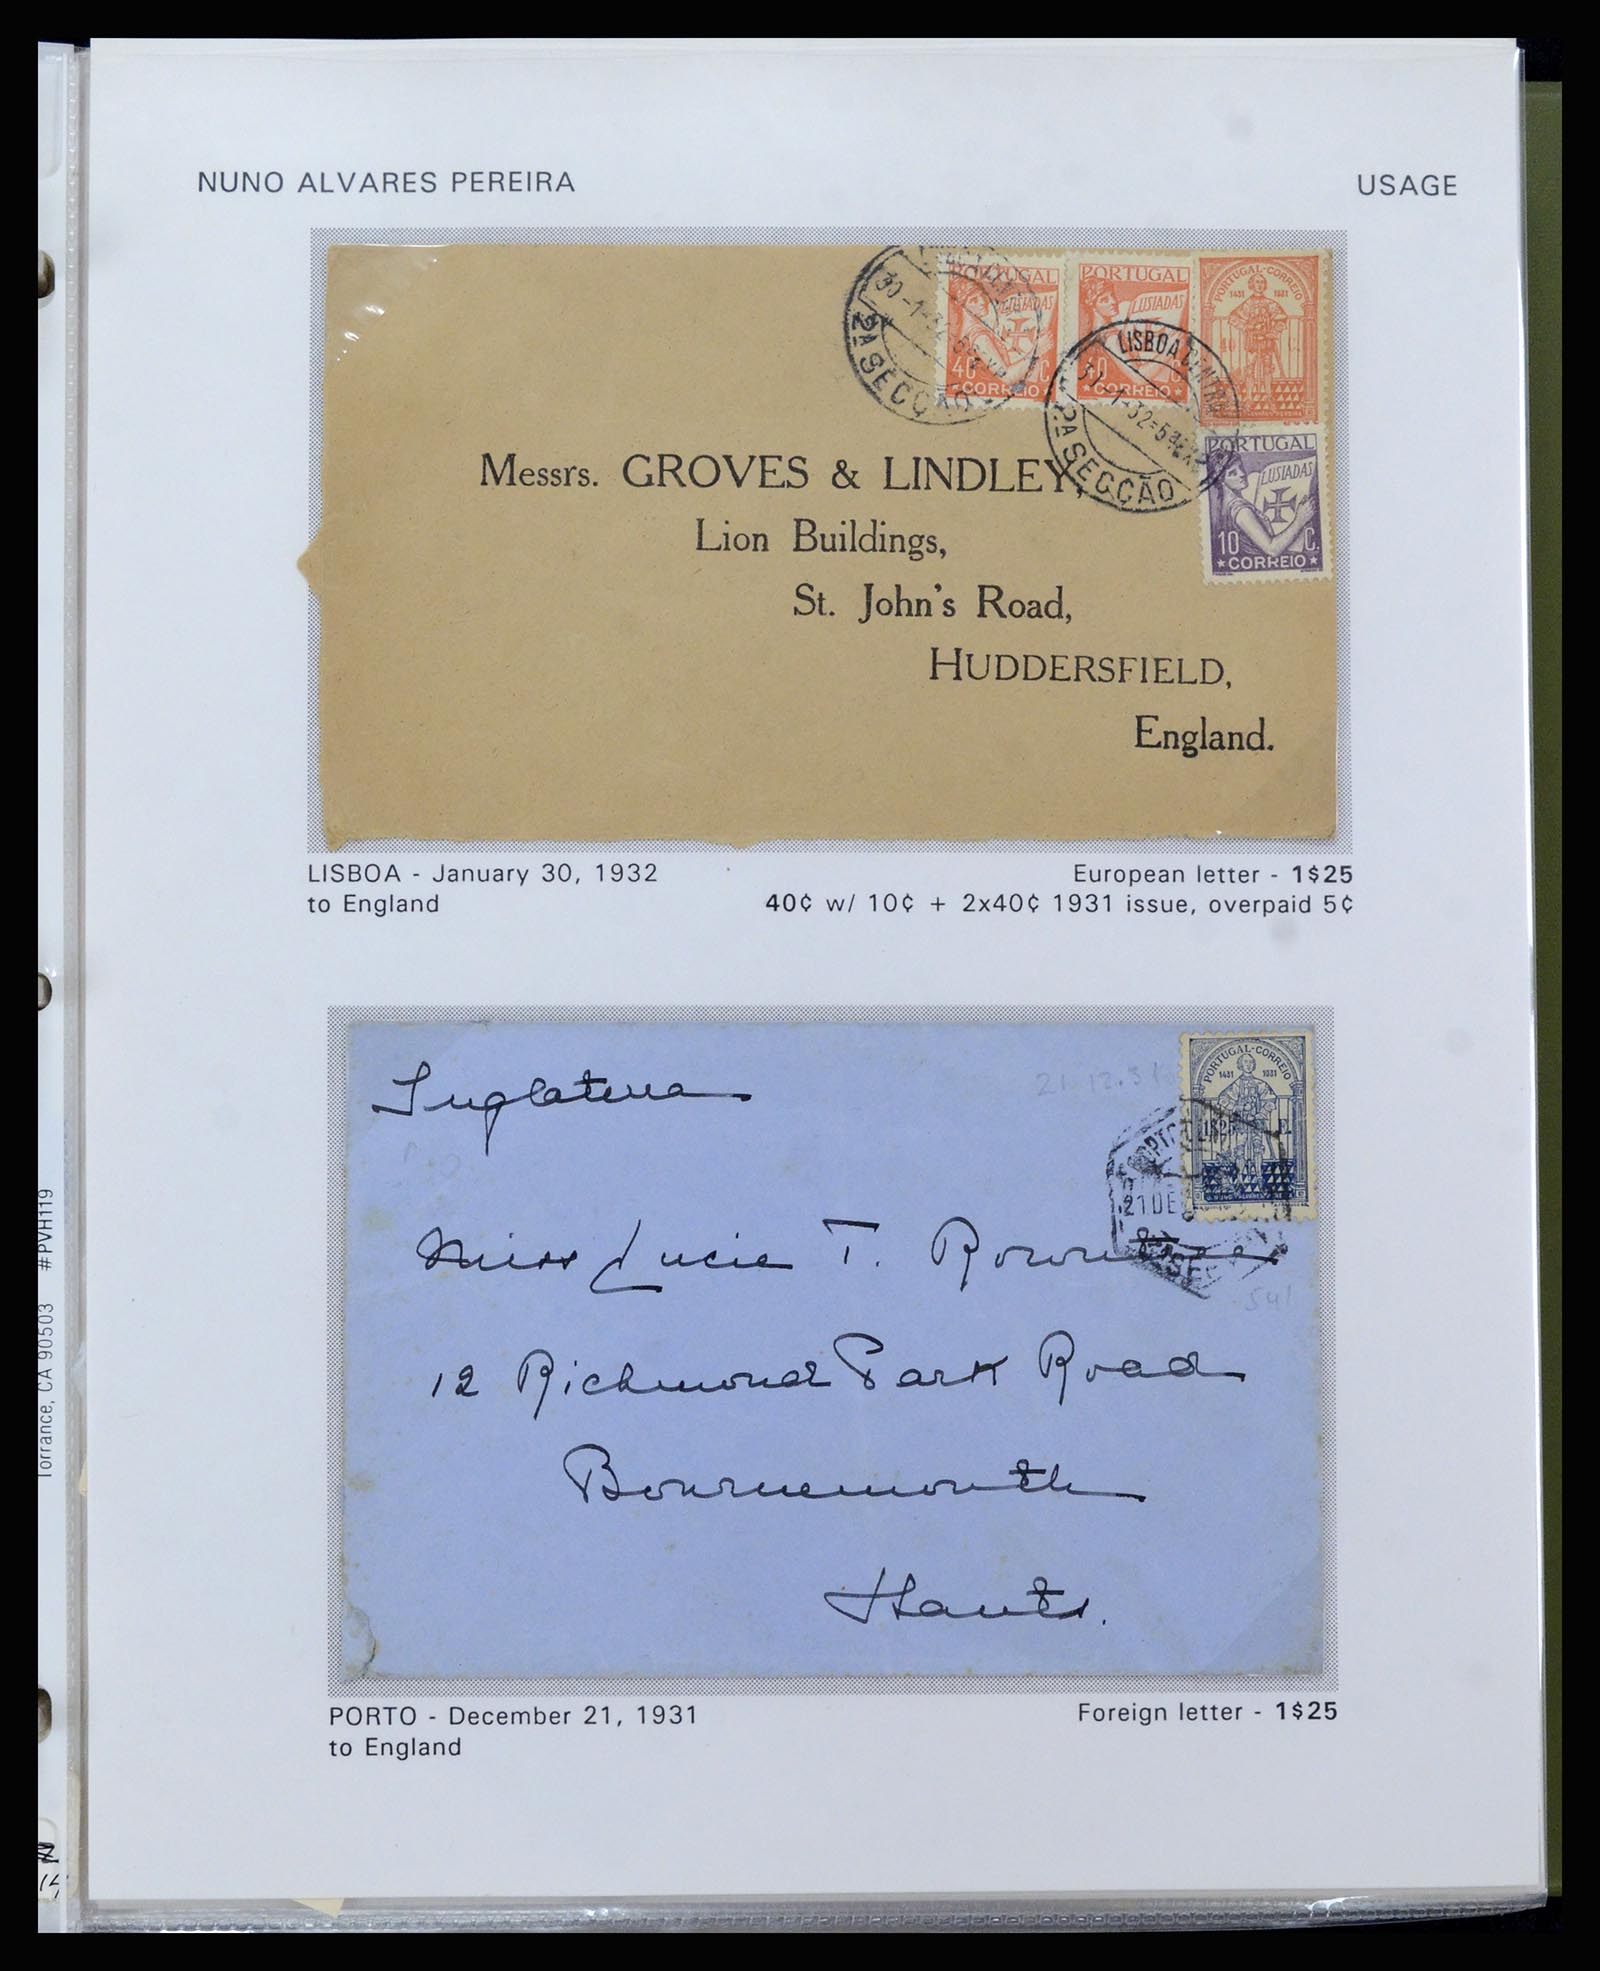 NUNO ALVARES PEREIRA
USAGE
30-1-32
2ª SECÇÃO
PORTUGAL
LUSIADAS
40 C.
CORREIO
PORTUGAL
LUSIADAS
40 C.
CORREIO
PORTUGAL-CORREIO
1431 1931
40 C.
LISBOA CENTRAL
31-1-32
2ª SECÇÃO
PORTUGAL
LUSIADAS
10 C.
*CORREIO*
Messrs. GROVES & LINDLEY,
Lion Buildings,
St. John's Road,
HUDDERSFIELD,
England.
LISBOA - January 30, 1932
to England
European letter - 1$25
40¢ w/ 10¢ + 2x40¢ 1931 issue, overpaid 5¢
Inglaterra
21.12.31
PORTUGAL-CORREIO
1431 1931
1$25 E.
PORTO
21 DE
Miss Lucie T.
541
12 Richmond Park Road
Bournemouth
Hants.
PORTO - December 21, 1931
to England
Foreign letter - 1$25
Torrance, CA 90503 #PVH119
14